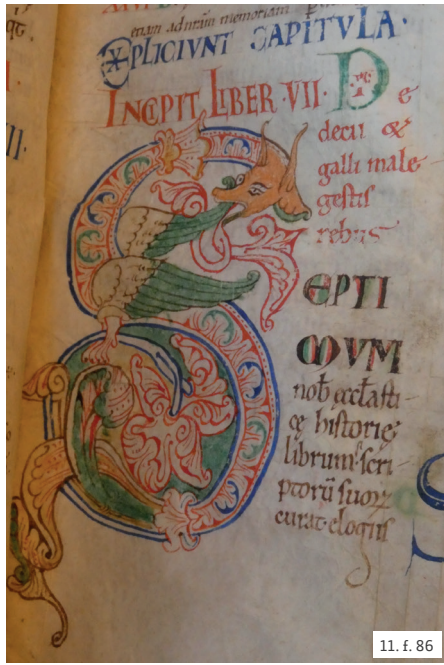 etiam aduītum memoriam
EXPLICIVNT CAPITVLA·
INCIPIT LIBER ·VII· De
decii &
galli male
gestis
rebus
EPTI
MVM
nob̄ ęcclasti
cę historię
librum scri
ptorū suoꝝ
curat elogiis
11. f. 86